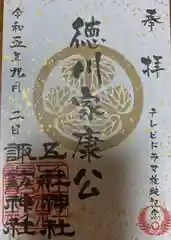 奉拝
テレビドラマ放映記念
徳川家康公
令和五年九月二日
五社神社
諏訪神社